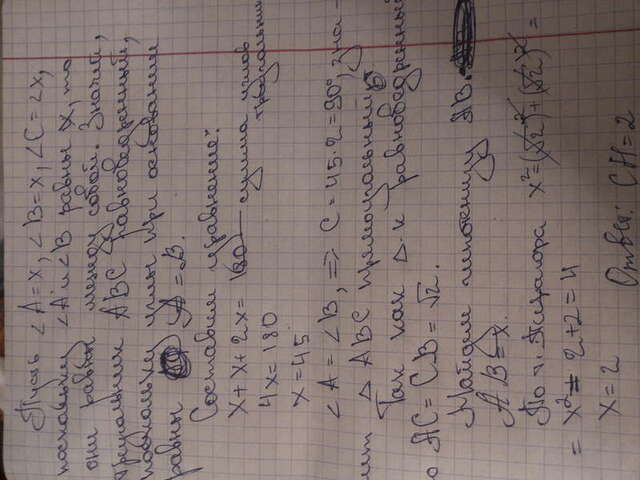 Пусть ∠A = x, ∠B = x, ∠C = 2x,
поскольку ∠A и ∠B равны x, то
они равны между собой. Значит,
треугольник ABC равнобедренный,
поскольку углы при основании
равны ∠A = ∠B.
Составим уравнение:
x + x + 2x = 180 — сумма углов
треугольника
4x = 180
x = 45
∠A = ∠B, ⇒ C = 45·2 = 90°, зна-
чит △ ABC прямоугольный
Так как △-к равнобедренный
то AC = CB = √2.
Найдём гипотенузу AB.
AB = x.
По т. Пифагора x² = (√2)² + (√2)² =
= x² = 2+2 = 4
x = 2
Ответ: CH = 2